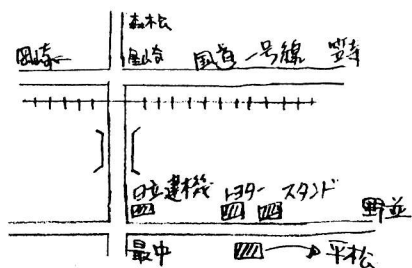 岡崎
星崎
国道一号線
笠寺
日立建機
トヨター
スタンド
野並
最中
平松